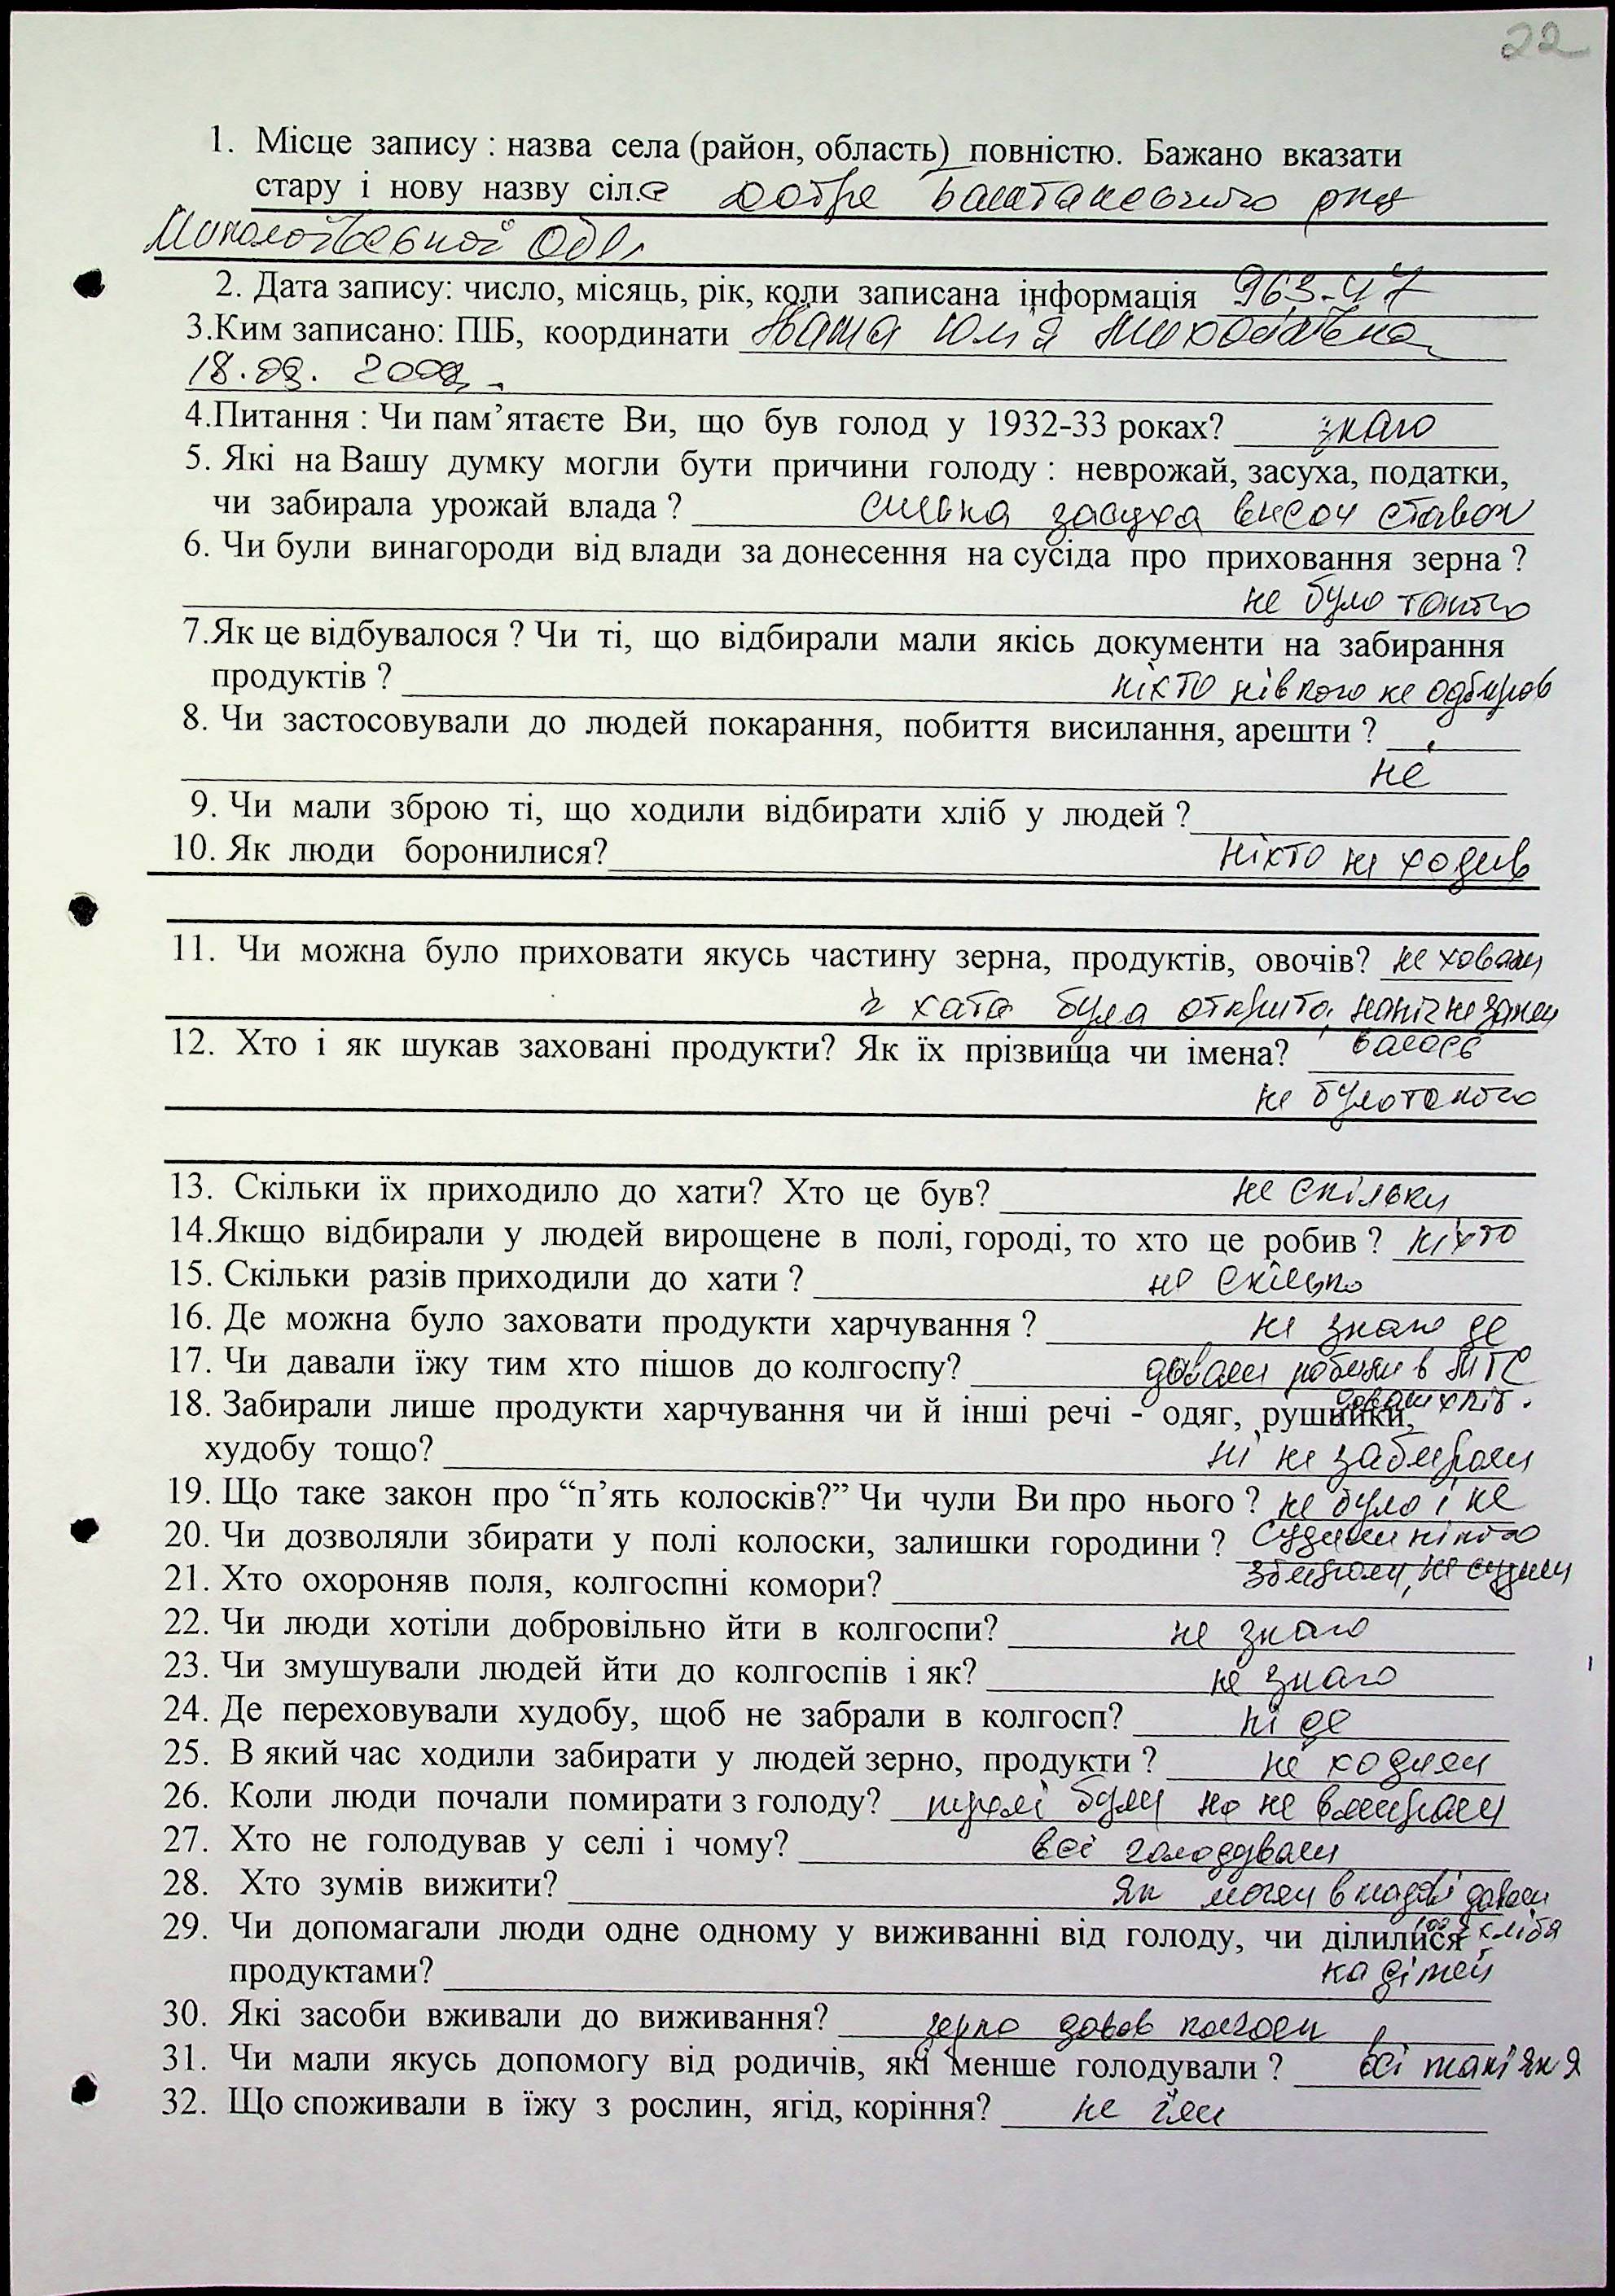 22
1. Місце запису : назва села (район, область) повністю. Бажано вказати
стару і нову назву сіл.с Добре Баштанського рну
Миколаївської Обл,
2. Дата запису: число, місяць, рік, коли записана інформація 963-47
3.Ким записано: ПІБ, координати Юлія
18.09.
4.Питання : Чи пам’ятаєте Ви, що був голод у 1932-33 роках? знаю
5. Які на Вашу думку могли бути причини голоду : неврожай, засуха, податки,
чи забирала урожай влада ? засуха висох ставок
6. Чи були винагороди від влади за донесення на сусіда про приховання зерна ?
не було такого
7.Як це відбувалося ? Чи ті, що відбирали мали якісь документи на забирання
продуктів ? ніхто нівкого не одбирав
8. Чи застосовували до людей покарання, побиття висилання, арешти ?
не
9. Чи мали зброю ті, що ходили відбирати хліб у людей ?
10. Як люди боронилися? ніхто не ходив
11. Чи можна було приховати якусь частину зерна, продуктів, овочів? не ховали
і хата була открита,
12. Хто і як шукав заховані продукти? Як їх прізвища чи імена?
не було такого
13. Скільки їх приходило до хати? Хто це був? не скільки
14.Якщо відбирали у людей вирощене в полі, городі, то хто це робив ? ніхто
15. Скільки разів приходили до хати ? не скілько
16. Де можна було заховати продукти харчування ? не знаю де
17. Чи давали їжу тим хто пішов до колгоспу? давали робили в МТС
давали хліб.
18. Забирали лише продукти харчування чи й інші речі - одяг, рушники,
худобу тощо? ні не забирали
19. Що таке закон про “п’ять колосків?” Чи чули Ви про нього ? не було і не
20. Чи дозволяли збирати у полі колоски, залишки городини ? судили нікого
збирали, не судили
21. Хто охороняв поля, колгоспні комори?
22. Чи люди хотіли добровільно йти в колгоспи? не знаю
23. Чи змушували людей йти до колгоспів і як? не знаю
24. Де переховували худобу, щоб не забрали в колгосп? ні де
25. В який час ходили забирати у людей зерно, продукти ? не ходили
26. Коли люди почали помирати з голоду? пухлі були но не вмирали
27. Хто не голодував у селі і чому? всі голодували
28. Хто зумів вижити? Як могли в давали
100 г хліба
29. Чи допомагали люди одне одному у виживанні від голоду, чи ділилися
продуктами? на дітей
30. Які засоби вживали до виживання? зерно давав колгосп
31. Чи мали якусь допомогу від родичів, які менше голодували ? всі такі як я
32. Що споживали в їжу з рослин, ягід, коріння? не їли